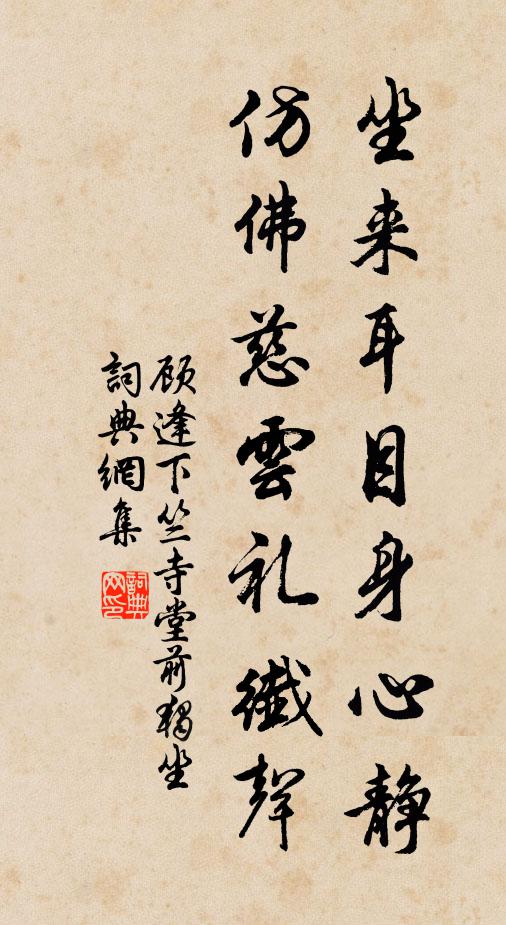 坐来耳目身心静
仿佛慈雲礼懺聲
顾逢下竺寺堂前獨坐
詞典網集
詞典网印